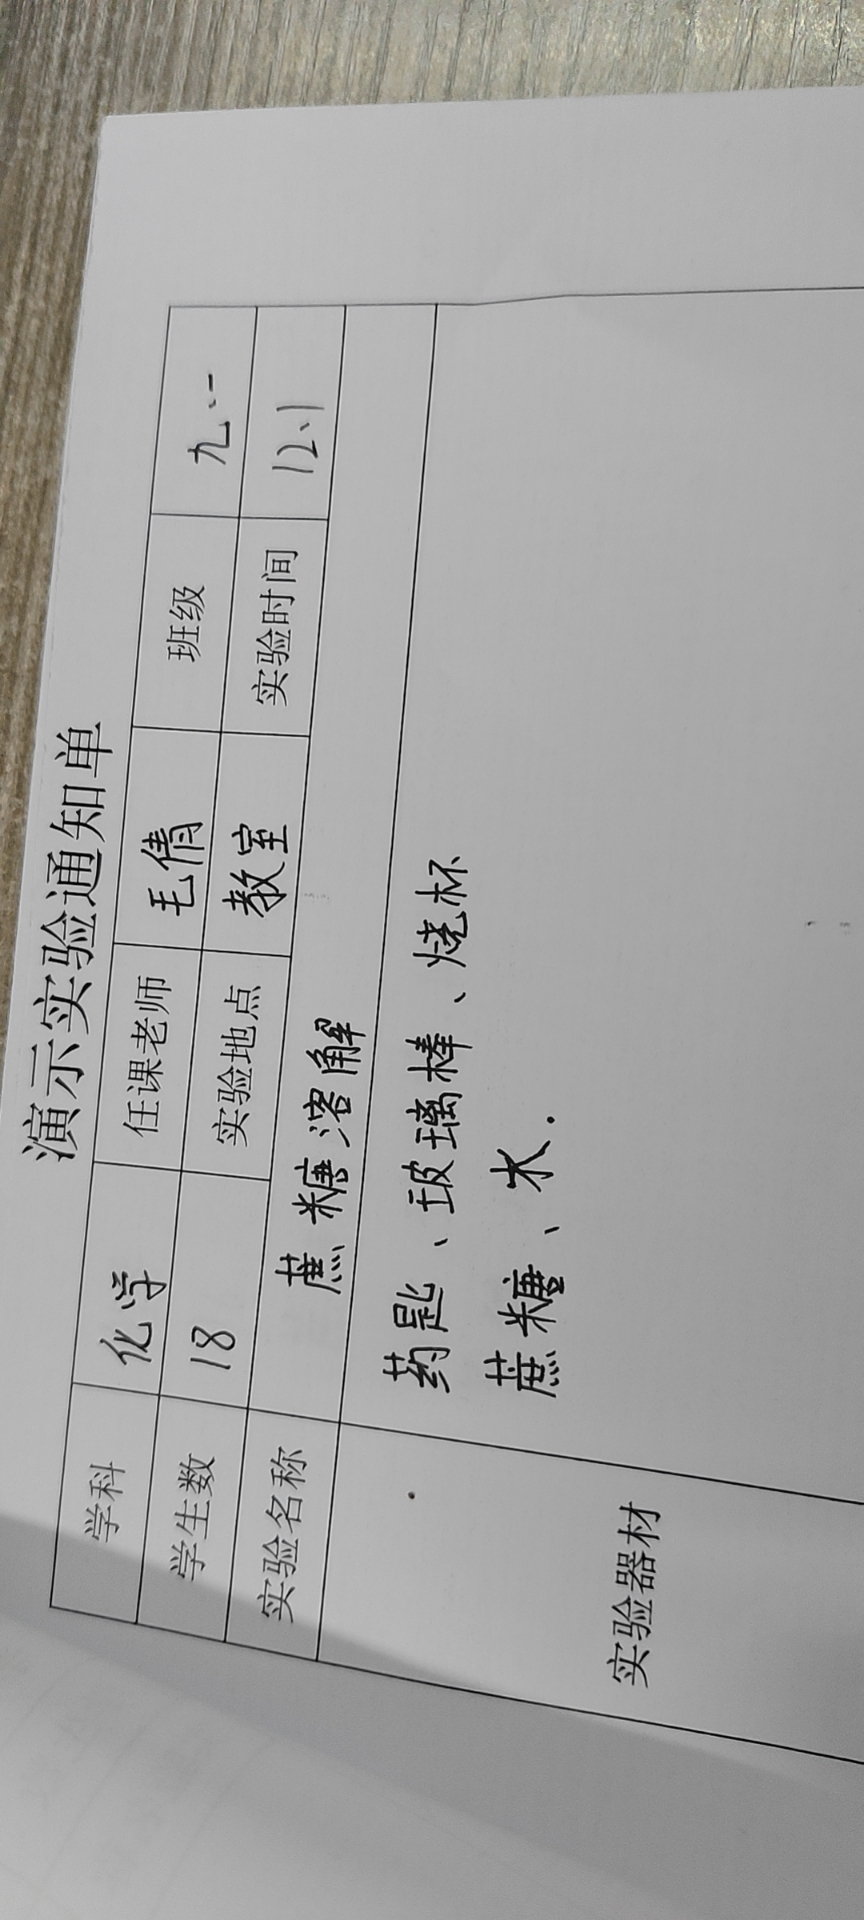 演示实验通知单
学科 化学 任课老师 毛倩 班级 九.一
学生数 18 实验地点 教室 实验时间 12.1
实验名称 蔗糖溶解
实验器材
药匙、玻璃棒、烧杯
蔗糖、水.